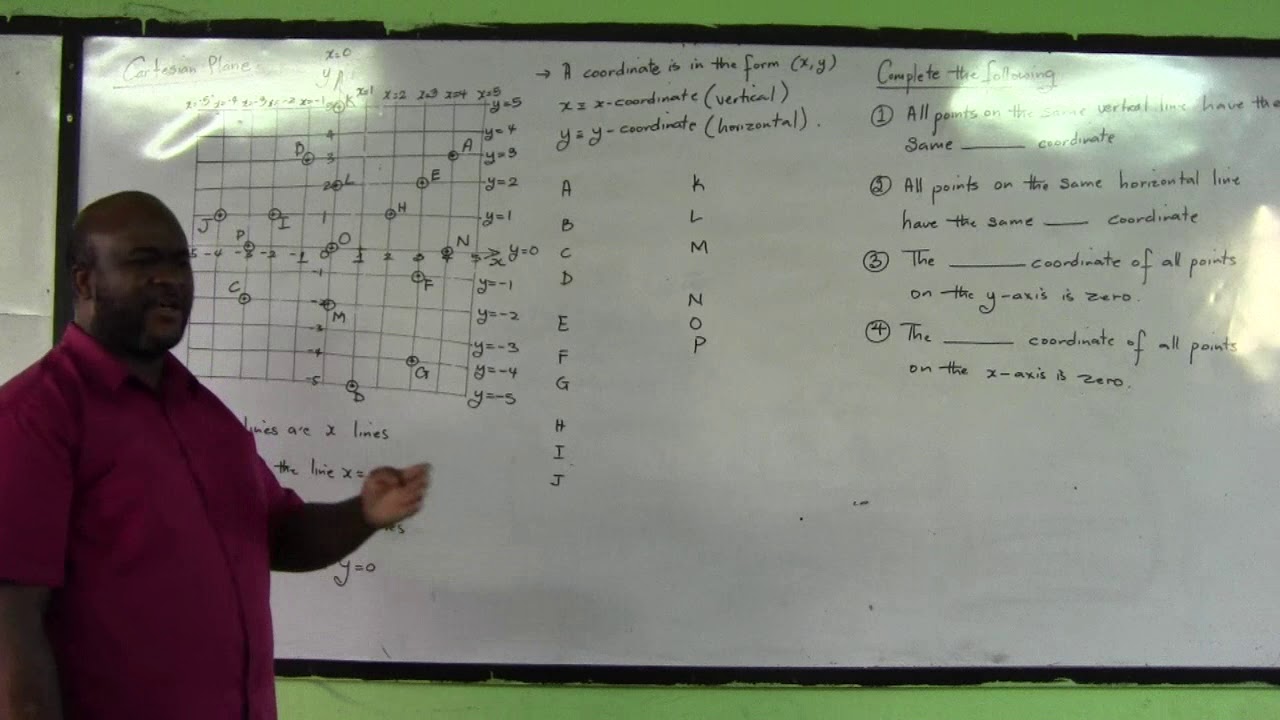 Cartesian Plane
x=0
y
x=-5 x=-4 x=-3 x=-2 x=-1 K x=1 x=2 x=3 x=4 x=5
y=5
4 y=4
B 3 A y=3
2 L E y=2
J I 1 H y=1
P O N y=0
-5 -4 -3 -2 -1 0 1 2 3 4 5 x
-1 F y=-1
C -2 M y=-2
-3 y=-3
-4 G y=-4
-5 D y=-5
lines are x lines
the line x=
y=0
→ A coordinate is in the form (x,y)
x ≡ x-coordinate (vertical)
y ≡ y-coordinate (horizontal).
A
B
C
D
E
F
G
H
I
J
K
L
M
N
O
P
Complete the following
① All points on the same vertical line have the
same ______ coordinate
② All points on the same horizontal line
have the same ____ coordinate
③ The ______ coordinate of all points
on the y-axis is zero.
④ The ______ coordinate of all points
on the x-axis is zero.